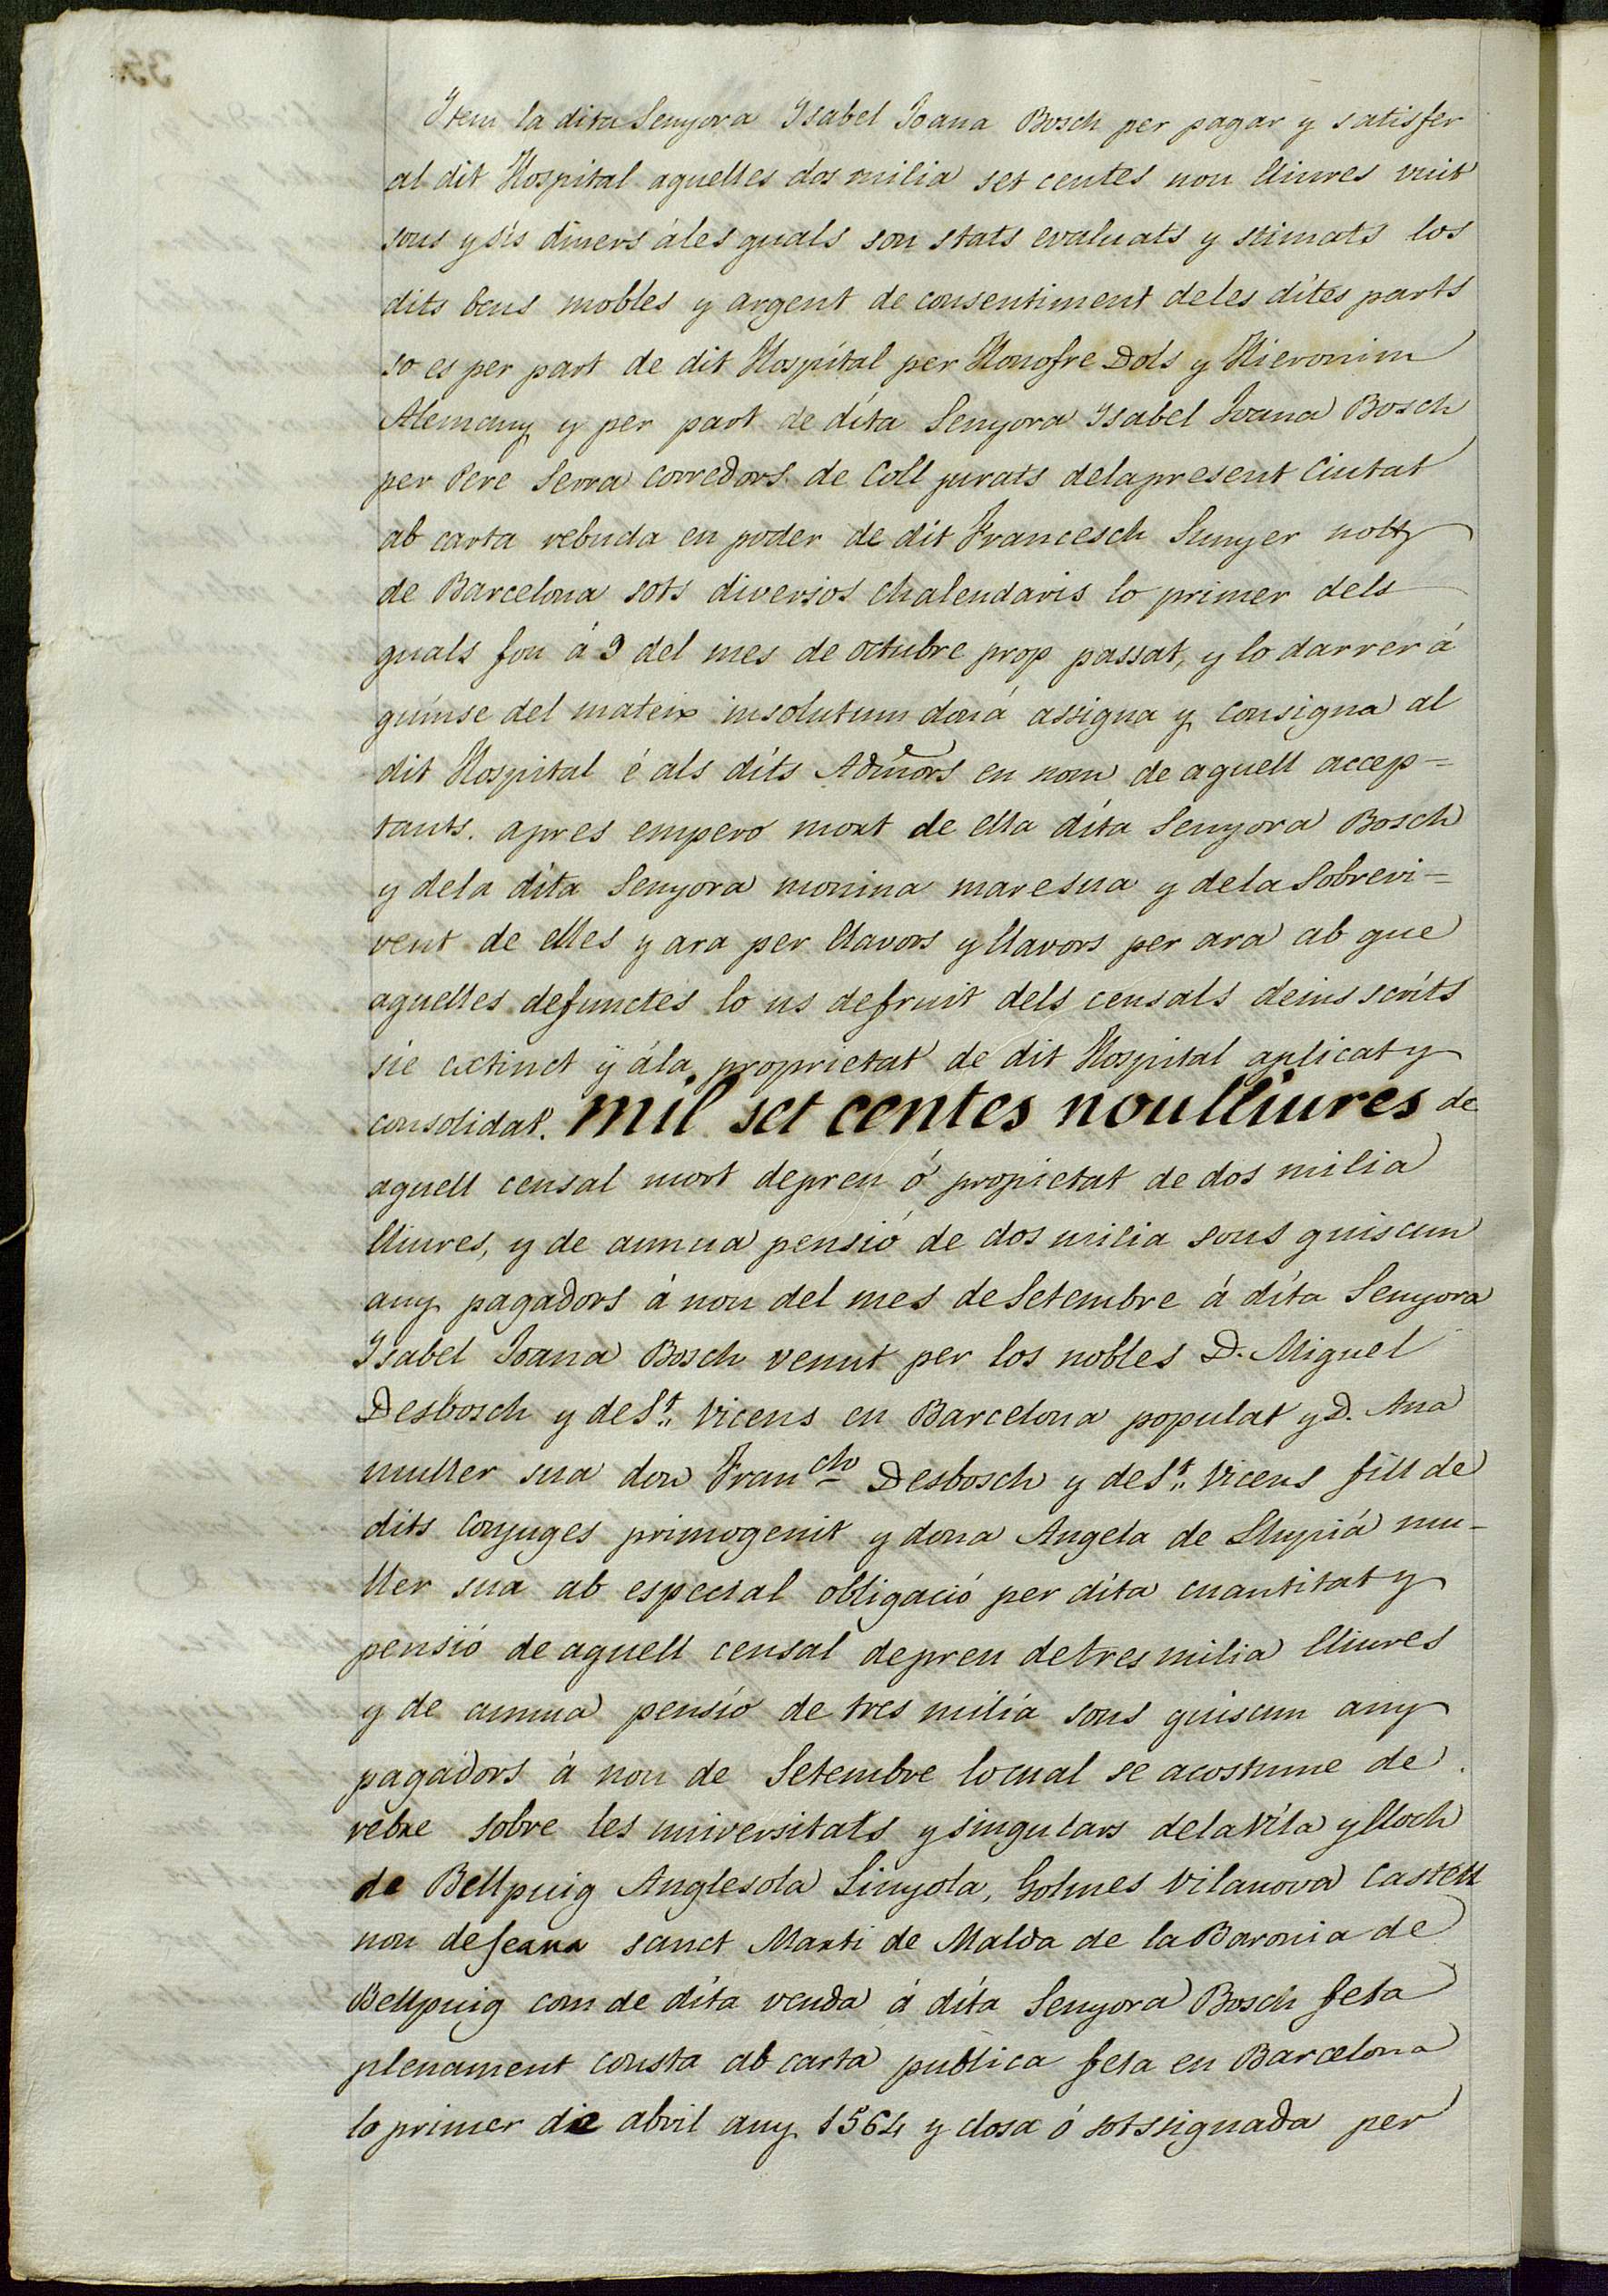 Item la dita Senyora Ysabel Joana Bosch per pagar y satisfer
al dit Hospital aquelles dos milia set centes nou lliures vuit
sous y sis diners áles quals son stats evaluats y stimats los
dits bens mobles y argent de consentiment deles dites parts
so es per part de dit Hospital per Honofre Dols y Hieronim
Alemany y per part de dita Senyora Ysabel Joana Bosch
per Pere Serra corredors de Coll jurats delapresent Ciutat
ab carta rebuda en poder de dit Francesch Sunyer noty
de Barcelona sots diversos chalendaris lo primer dels
quals fou á 9 del mes de octubre prop passat, y lo darrer á
quinse del mateix insolutum doná assigna y consigna al
dit Hospital é als dits Admors en nom de aquell accep=
tants. apres empero mort de ella dita Senyora Bosch
y dela dita Senyora monina maresua y dela Sobrevi=
vent de elles y ara per llavors y llavors per ara ab que
aquelles defunctes lo us defruit dels censals deius scrits
sie extinct y ála proprietat de dit Hospital aplicat y
consolidat. mil set centes noulliures de
aquell censal mort depreu ó propietat de dos milia
lliures, y de annua pensió de dos milia sous quiscun
any pagadors á nou del mes de Setembre á dita Senyora
Ysabel Joana Bosch venut per los nobles D. Miquel
Desbosch y deSt.. Vicens en Barcelona populat y D. Ana
muller sua don Franch Desbosch y deSt.. Vicens fill de
dits Conjuges primogenit y dona Angela de Llupiá mu-
ller sua ab especial obligació per dita cuantitat y
pensió de aquell censal depreu detres milia lliures
y de annua pensió de tres milia sous quiscun any
pagadors á nou de Setembre locual se acostume de
rebre sobre les universitats y singulars delaVila y lloch
de Bellpuig Anglesola Linyola, Golmes Vilanova Castell
nou deseana sanct Marti de Malda de la Baronia de
Bellpuig com de dita venda á dita Senyora Bosch feta
plenament consta ab carta publica feta en Barcelona
lo primer die abril any 1564 y closa ó sotssignada per